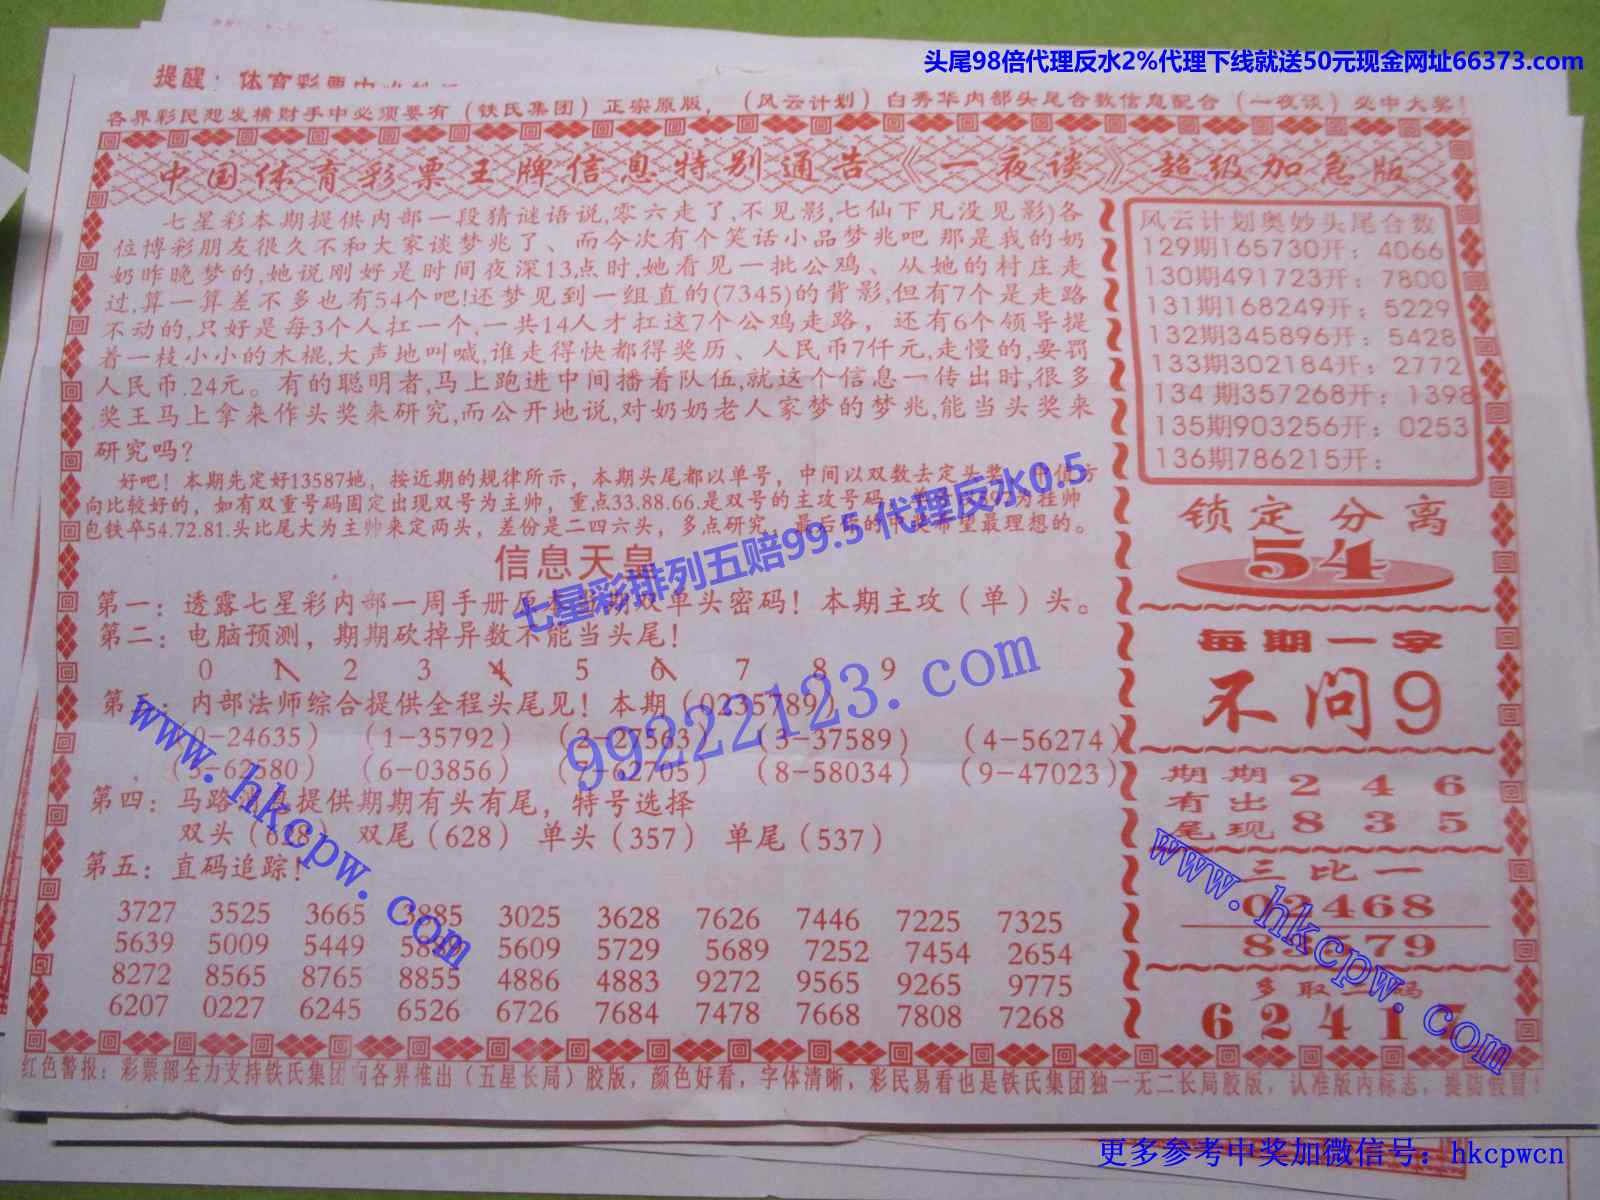 头尾98倍代理反水2%代理下线就送50元现金网址66373.com
提醒：体育彩票中
各界彩民想发横财手中必须要有（铁氏集团）正宗原版，（风云计划）白秀华内部头尾合数信息配合（一夜谈）必中大奖！
中国体育彩票王牌信息特别通告《一夜谈》超级加急版
七星彩本期提供内部一段猜谜语说,零六走了,不见影,七仙下凡没见影)各
位博彩朋友很久不和大家谈梦兆了、而今次有个笑话小品梦兆吧 那是我的奶
奶昨晚梦的,她说刚好是时间夜深13点时,她看见一批公鸡、从她的村庄走
过,算一算差不多也有54个吧!还梦见到一组直的(7345)的背影,但有7个是走路
不动的,只好是每3个人扛一个,一共14人才扛这7个公鸡走路，还有6个领导提
着一枝小小的木棍,大声地叫喊,谁走得快都得奖历、人民币7仟元,走慢的,要罚
人民币.24元。有的聪明者,马上跑进中间播着队伍,就这个信息一传出时,很多
奖王马上拿来作头奖来研究,而公开地说,对奶奶老人家梦的梦兆,能当头奖来
研究吗?
好吧！本期先定好13587她，按近期的规律所示，本期头尾都以单号，中间以双数去定头奖
向比较好的，如有双重号码固定出现双号为主帅，重点33.88.66.是双号的主攻号码 为挂帅
包铁卒54.72.81.头比尾大为主帅来定两头，差份是二四六头，多点研究，最后 希望最理想的。
信息天皇
第一：透露七星彩内部一周手册 双单头密码！本期主攻（单）头。
第二：电脑预测，期期砍掉异数不能当头尾！
0 1 2 3 4 5 6 7 8 9
第三：内部法师综合提供全程头尾见！本期（0235789）
（0-24635）（1-35792）（2-27563）（3-37589）（4-56274）
（5-62580）（6-03856）（7-62705）（8-58034）（9-47023）
第四：马路 提供期期有头有尾，特号选择
双头（628）双尾（628）单头（357）单尾（537）
第五：直码追踪！
3727 3525 3665 3885 3025 3628 7626 7446 7225 7325
5639 5009 5449 5609 5729 5689 7252 7454 2654
8272 8565 8765 8855 4886 4883 9272 9565 9265 9775
6207 0227 6245 6526 6726 7684 7478 7668 7808 7268
风云计划奥妙头尾合数
129期165730开：4066
130期491723开：7800
131期168249开：5229
132期345896开：5428
133期302184开：2772
134期357268开：1398
135期903256开：0253
136期786215开：
锁定分离
54
每期一字
不问9
期期 2 4 6
有出
尾现 8 3 5
三比一
02468
579
多取二码
6 2 4 1 7
红色警报：彩票部全力支持铁氏集团向各界推出（五星长局）胶版，颜色好看，字体清晰，彩民易看也是铁氏集团独一无二长局胶版，认准版内标志，提防假冒！
七星彩排列五赔99.5 代理反水0.5
99222123.com
www.hkcpw.com
www.hkcpw.com
更多参考中奖加微信号：hkcpwcn